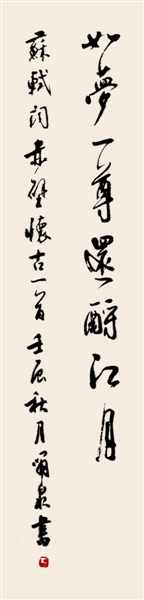 如夢一尊還酹江月
蘇軾詞赤壁懷古一首壬辰秋月爾泉書